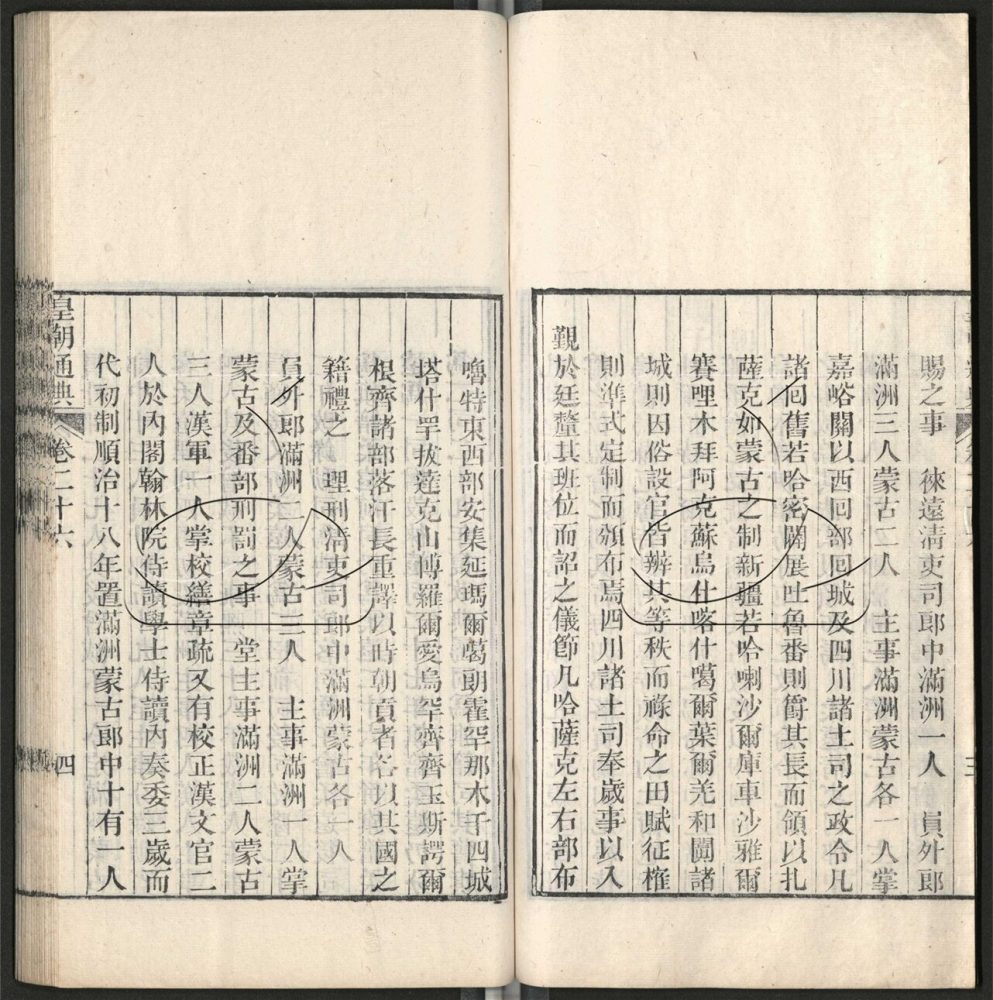 賜之事　徠遠清吏司郎中滿洲一人　員外郎
滿洲三人蒙古二人　主事滿洲蒙古各一人掌
嘉峪關以西回部回城及四川諸土司之政令凡
諸回舊若哈密闢展吐魯番則爵其長而領以扎
薩克如蒙古之制新疆若哈喇沙爾庫車沙雅爾
賽哩木拜阿克蘇烏什喀什噶爾葉爾羌和闐諸
城則因俗設官皆辨其等秩而祿命之田賦征榷
則準式定制而頒布焉四川諸土司奉歲事以入
覲於廷釐其班位而詔之儀節凡哈薩克左右部布
嚕特東西部安集延瑪爾噶朗霍罕那木干四城
塔什罕拔達克山博羅爾愛烏罕齊齊玉斯諤爾
根齊諸部落汗長重譯以時朝貢者各以其國之
籍禮之　理刑清吏司郎中滿洲蒙古各一人
員外郎滿洲二人蒙古三人　主事滿洲一人掌
蒙古及番部刑罰之事　堂主事滿洲二人蒙古
三人漢軍一人掌校繕章疏又有校正漢文官二
人於內閣翰林院侍讀學士侍讀內奏委三歲而
代初制順治十八年置滿洲蒙古郎中十有一人
皇朝通典　卷二十六　四